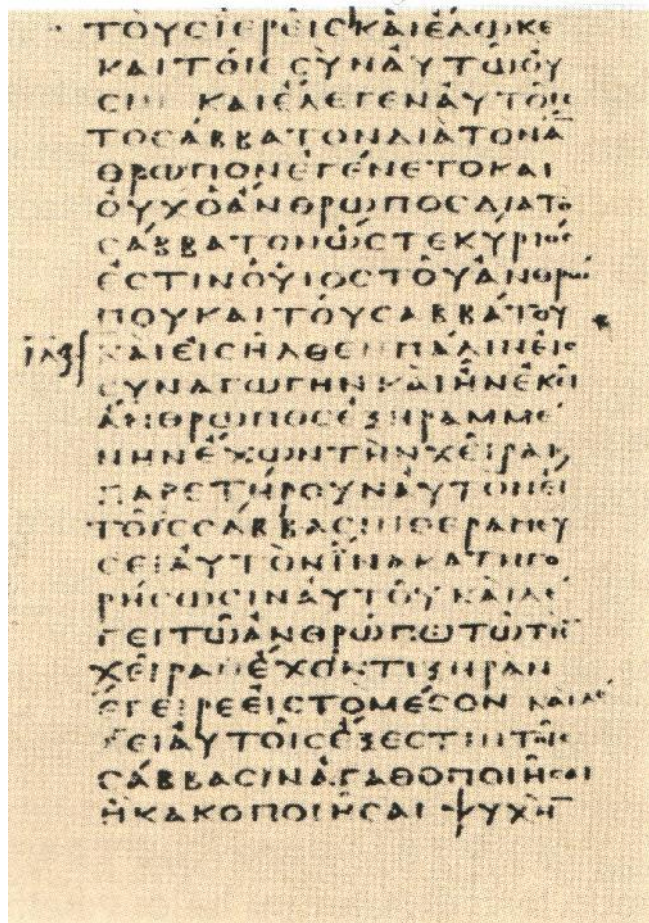 ΤΟῪϹἹΕΡΕῖϹΚΑῚἜΔΩΚΕ
ΚΑῚΤΟῖϹϹῪΝΑΥΤΩ͂ΟΥ͂
ϹΙΝ ΚΑῚἜΛΕΓΕΝΑΥΤΟῖϹ
ΤΟϹΆΒΒΑΤΟΝΔΙᾺΤΟΝᾹ
ΘΡΩΠΟΝἘΓΈΝΕΤΟΚΑΙ
ΟΥΧΟἌΝΘΡΩΠΟϹΔΙΑΤΟ
ϹΆΒΒΑΤΟΝΏϹΤΕΚΎΡΙΟϹ
ἘϹΤΙΝΟΥΙΟϹΤΟΥ͂ἈΝΘΡΏ
ΠΟΥΚΑΙΤΟΥ͂ϹΑΒΒΆΤΟΥ
ΚΑῚΕἸϹΗ͂ΛΘΕΝΠΆΛΙΝΕἸϹ
ϹΥΝΑΓΩΓΗΝΚΑῚΗ͂ΝἘΚΕΙ
ἌΝΘΡΩΠΟϹἘΞΗΡΑΜΜΕ
ΝΗΝἜΧΩΝΤῊΝΧΕῖΡΑΚ,
ΠΑΡΕΤΉΡΟΥΝΑΥΤῸΝΕΙ
ΤΟῖϹϹΆΒΒΑϹΙΝΘΕΡΑΠΕΥ
ϹΕΙΑΥΤῸΝἽΝΑΚΑΤΗΓΟ
ΡΉϹΩϹΙΝΑΥΤΟΥ͂ΚΑῚΛΕ
ΓΕΙΤΩ͂ἈΝΘΡΏΠΩΤΩ͂ΤῊ̄
ΧΕῖΡΑΝἜΧΟΝΤΙΞΗΡΑΝ
ἜΓΕΙΡΕΕἸϹΤΟΜΈϹΟΝ ΚΑΙΛΕ
ΓΕΙΑΥΤΟῖϹἜΞΕϹΤΙΝΤΟῖϹ
ϹΆΒΒΑϹΙΝἈΓΑΘΟΠΟΙΗ͂ϹΑΙ
ἪΚΑΚΟΠΟΙΗ͂ϹΑΙ ΨΥΧῊ̄